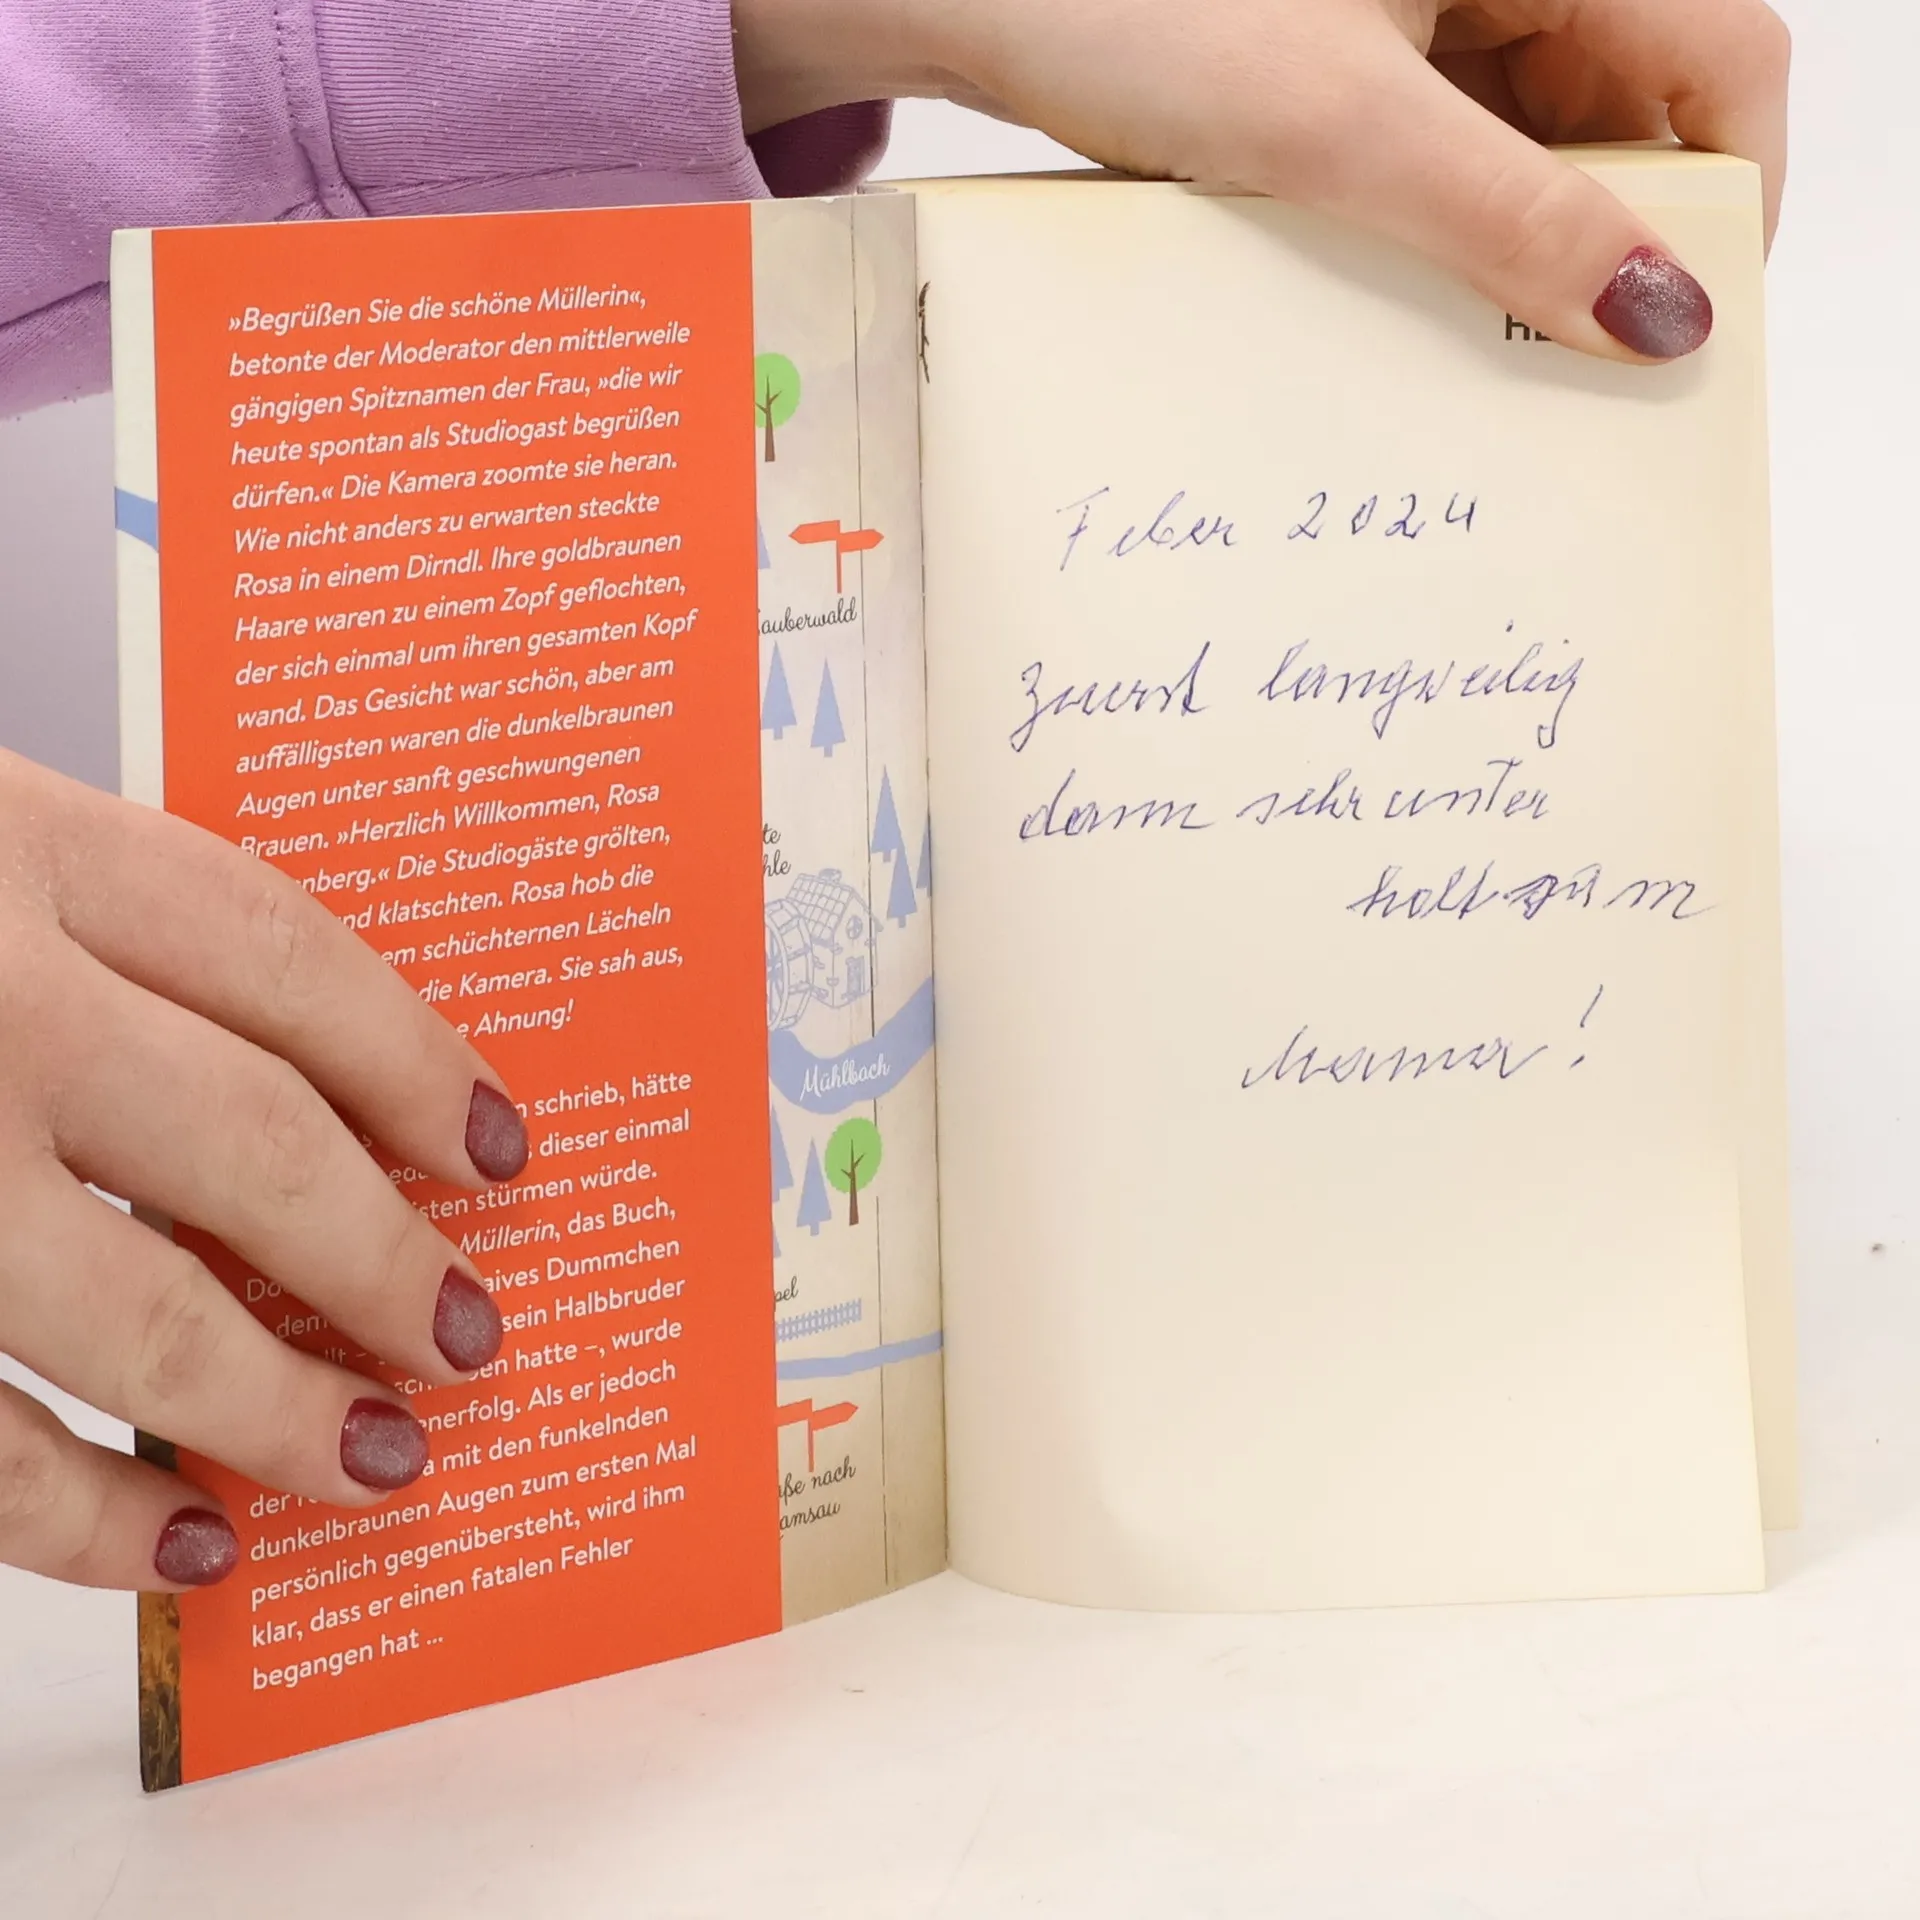 »Begrüßen Sie die schöne Müllerin«,
betonte der Moderator den mittlerweile
gängigen Spitznamen der Frau, »die wir
heute spontan als Studiogast begrüßen
dürfen.« Die Kamera zoomte sie heran.
Wie nicht anders zu erwarten steckte
Rosa in einem Dirndl. Ihre goldbraunen
Haare waren zu einem Zopf geflochten,
der sich einmal um ihren gesamten Kopf
wand. Das Gesicht war schön, aber am
auffälligsten waren die dunkelbraunen
Augen unter sanft geschwungenen
Brauen. »Herzlich Willkommen, Rosa
nberg.« Die Studiogäste grölten,
nd klatschten. Rosa hob die
em schüchternen Lächeln
die Kamera. Sie sah aus,
e Ahnung!
n schrieb, hätte
dieser einmal
sten stürmen würde.
Müllerin, das Buch,
aives Dummchen
dem sein Halbbruder
en hatte –, wurde
enerfolg. Als er jedoch
a mit den funkelnden
der
dunkelbraunen Augen zum ersten Mal
persönlich gegenübersteht, wird ihm
klar, dass er einen fatalen Fehler
begangen hat ...
auberwald
te
hle
Mühlbach
pel
aße nach
amsau
Feber 2024
Zuerst langweilig
dann sehr unter
halt sam
Mama!